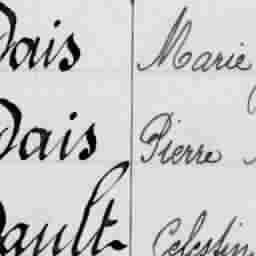 Dais Marie
Dais Pierre
ault Celestin